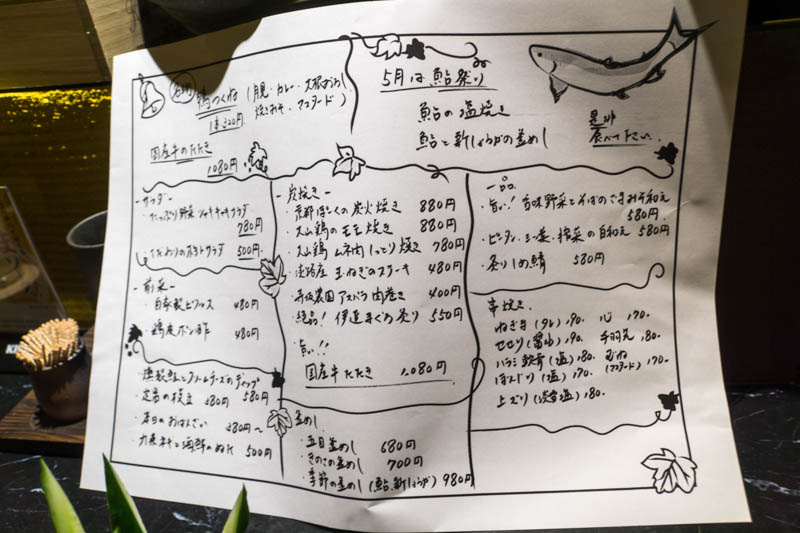 鶏つくね (月見・カレー・大根おろし
焼きみそ・マスタード)
1本320円
国産牛のたたき
1080円
5月は鮎祭り
鮎の塩焼き
鮎と新しょうがの釜めし
是非
食べて下さい
- サラダ -
・たっぷり野菜シャキシャキサラダ
780円
ポテトサラダ 500円
- 前菜 -
・自家製ピクルス 480円
・鶏皮ポン酢 480円
・燻製鮭とクリームチーズのディップ
580円
・定番の枝豆 380円
・本日のおばんざい 380円～
と海鮮のぬた 500円
- 炭焼き -
・京都ぽーくの炭火焼き 880円
・大山鶏のモモ焼き 880円
・大山鶏ムネ肉しっとり焼き 780円
・淡路産玉ねぎのステーキ 480円
農園アスパラ肉巻き 400円
・絶品!伊達まぐろ炙り 550円
・旨い!!
国産牛たたき 1,080円
釜めし
・五目釜めし 680円
・きのこの釜めし 700円
・季節の釜めし(鮎、新しょうが) 980円
一品
・旨い!香味野菜とそばのごまみそ和え
580円
・ピータン、三つ葉、搾菜の白和え 580円
・炙りしめ鯖 580円
串焼き
ねぎま(タレ)190. 心 170.
せせり(醤油)190. 手羽先 180.
ハラミ軟骨(塩)180. むね
ぼんじり(塩)170. (マスタード)170.
上ズリ(淡雪塩)180.